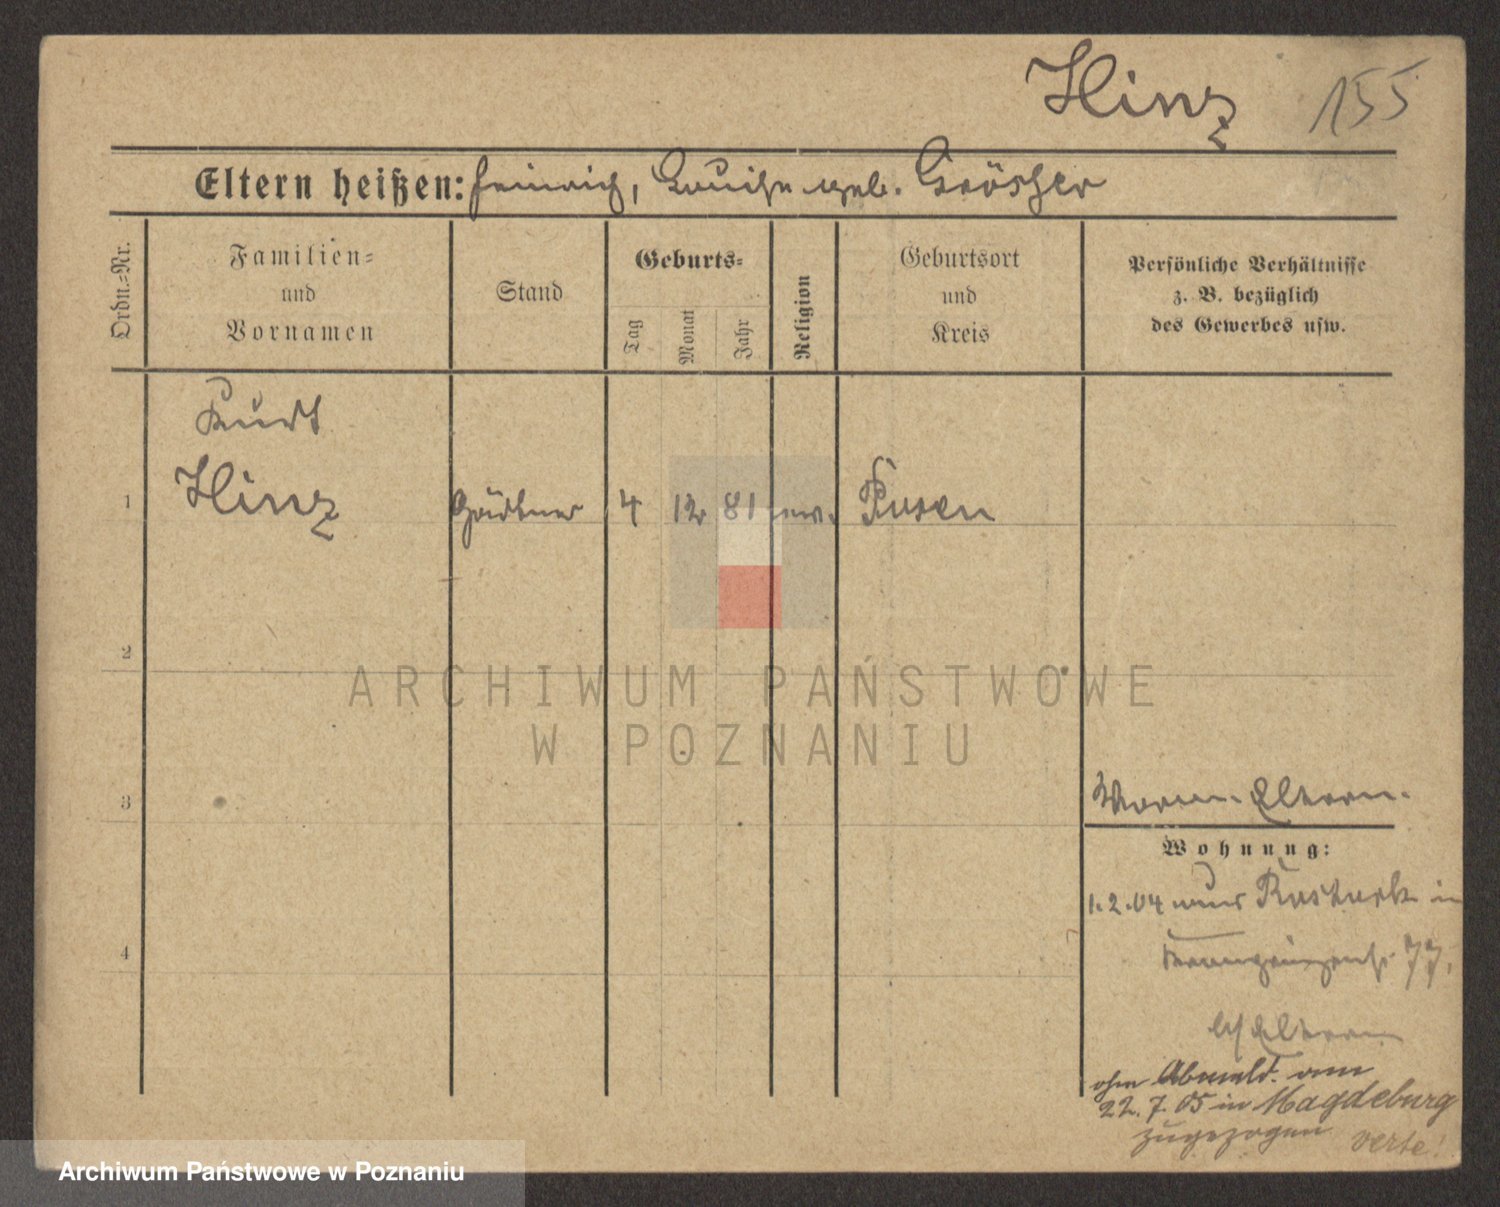 Hinz 155
Eltern heißen: Heinrich, Louise geb.
Ordn.-Nr.
Familien-
und
Vornamen
Stand
Geburts-
Tag
Monat
Jahr
Religion
Geburtsort
und
Kreis
Persönliche Verhältnisse
z. B. bezüglich
des Gewerbes usw.
Kurt
1 Hinz Gärtner 4 12 81 ev. Posen
2
ARCHIWUM PAŃSTWOWE
W POZNANIU
3
Eltern.
Wohnung:
1.2.04 aus Rostock in
4
77,
b/ Eltern
ohne Abmeld. am
22. 7. 05 in Magdeburg
zugezogen verte!
Archiwum Państwowe w Poznaniu